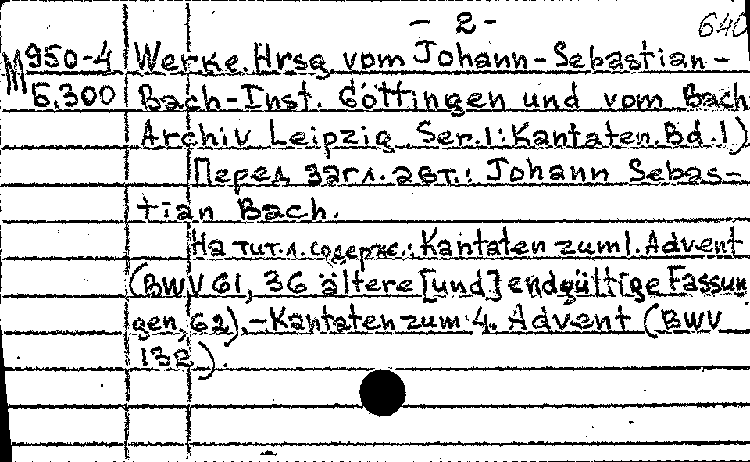 - 2 -
640
М 950-4 Werke. Hrsg vom Johann-Sebastian-
Б.300 Bach-Inst. Göttingen und vom Bach
Archiv Leipzig. Ser.1: Kantaten. Bd.1)
Перед загл. авт.: Johann Sebas-
tian Bach.
На тит.л. содерж.: Kantaten zum 1. Advent
(BWV 61, 36 ältere [und] endgültige Fassun
gen, 62). - Kantaten zum 4. Advent (BWV
132).